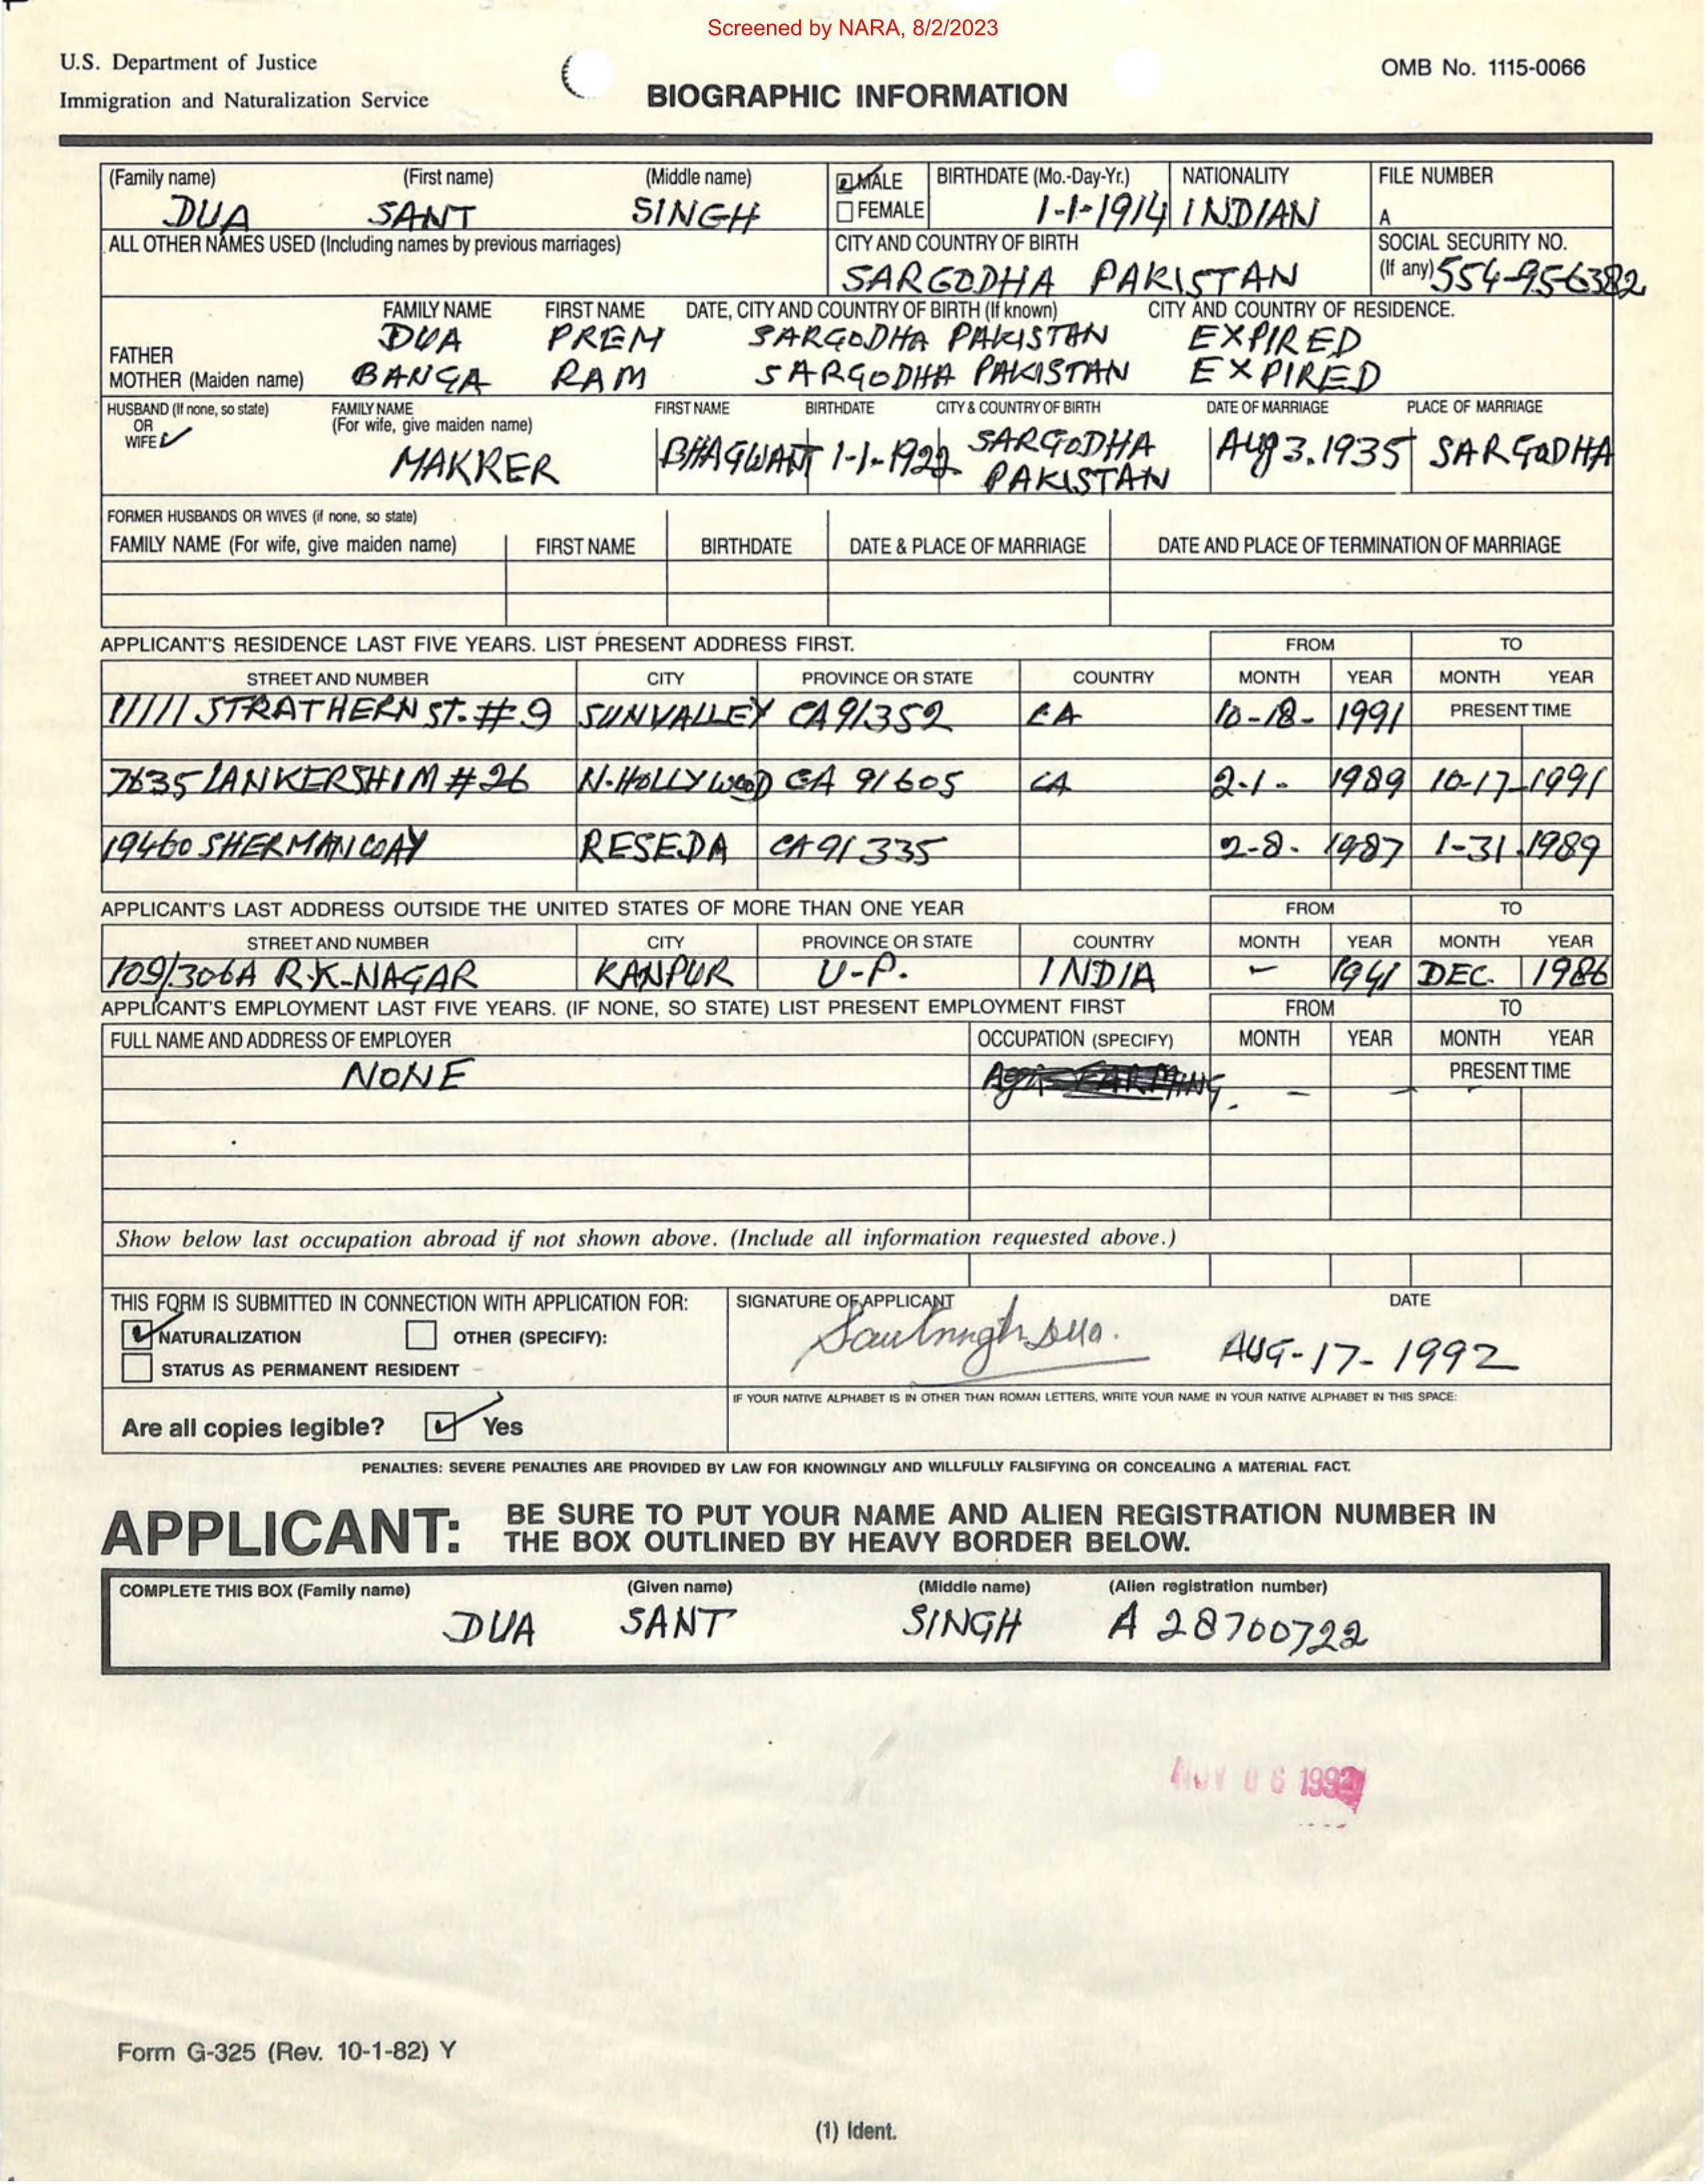 Screened by NARA, 8/2/2023
U.S. Department of Justice
Immigration and Naturalization Service
BIOGRAPHIC INFORMATION
OMB No. 1115-0066
(Family name) (First name) (Middle name) MALE BIRTHDATE (Mo.-Day-Yr.) NATIONALITY FILE NUMBER
DUA SANT SINGH FEMALE 1-1-1914 INDIAN A
ALL OTHER NAMES USED (Including names by previous marriages) CITY AND COUNTRY OF BIRTH SOCIAL SECURITY NO.
SARGODHA PAKISTAN (If any) 554-956382
FAMILY NAME FIRST NAME DATE, CITY AND COUNTRY OF BIRTH (If known) CITY AND COUNTRY OF RESIDENCE.
FATHER DUA PREM SARGODHA PAKISTAN EXPIRED
MOTHER (Maiden name) BANGA RAM SARGODHA PAKISTAN EXPIRED
HUSBAND (If none, so state) FAMILY NAME FIRST NAME BIRTHDATE CITY & COUNTRY OF BIRTH DATE OF MARRIAGE PLACE OF MARRIAGE
OR (For wife, give maiden name)
WIFE MAKRER BHAGWANT 1-1-1922 SARGODHA PAKISTAN Aug 3.1935 SARGODHA
FORMER HUSBANDS OR WIVES (if none, so state)
FAMILY NAME (For wife, give maiden name) FIRST NAME BIRTHDATE DATE & PLACE OF MARRIAGE DATE AND PLACE OF TERMINATION OF MARRIAGE
APPLICANT'S RESIDENCE LAST FIVE YEARS. LIST PRESENT ADDRESS FIRST. FROM TO
STREET AND NUMBER CITY PROVINCE OR STATE COUNTRY MONTH YEAR MONTH YEAR
11111 STRATHERN ST. #9 SUNVALLEY CA 91352 CA 10-18- 1991 PRESENT TIME
7635 LANKERSHIM #26 N.HOLLYWOOD CA 91605 CA 2-1- 1989 10-17-1991
19460 SHERMAN WAY RESEDA CA 91335 2-8- 1987 1-31.1989
APPLICANT'S LAST ADDRESS OUTSIDE THE UNITED STATES OF MORE THAN ONE YEAR FROM TO
STREET AND NUMBER CITY PROVINCE OR STATE COUNTRY MONTH YEAR MONTH YEAR
109/306A R.K-NAGAR KANPUR U-P. INDIA - 1941 DEC. 1986
APPLICANT'S EMPLOYMENT LAST FIVE YEARS. (IF NONE, SO STATE) LIST PRESENT EMPLOYMENT FIRST FROM TO
FULL NAME AND ADDRESS OF EMPLOYER OCCUPATION (SPECIFY) MONTH YEAR MONTH YEAR
NONE FARMING - - PRESENT TIME
Show below last occupation abroad if not shown above. (Include all information requested above.)
THIS FORM IS SUBMITTED IN CONNECTION WITH APPLICATION FOR: SIGNATURE OF APPLICANT DATE
NATURALIZATION OTHER (SPECIFY): AUG-17-1992
STATUS AS PERMANENT RESIDENT
IF YOUR NATIVE ALPHABET IS IN OTHER THAN ROMAN LETTERS, WRITE YOUR NAME IN YOUR NATIVE ALPHABET IN THIS SPACE:
Are all copies legible? Yes
PENALTIES: SEVERE PENALTIES ARE PROVIDED BY LAW FOR KNOWINGLY AND WILLFULLY FALSIFYING OR CONCEALING A MATERIAL FACT.
APPLICANT: BE SURE TO PUT YOUR NAME AND ALIEN REGISTRATION NUMBER IN
THE BOX OUTLINED BY HEAVY BORDER BELOW.
COMPLETE THIS BOX (Family name) (Given name) (Middle name) (Alien registration number)
DUA SANT SINGH A 28700722
NOV 06 1992
Form G-325 (Rev. 10-1-82) Y
(1) Ident.